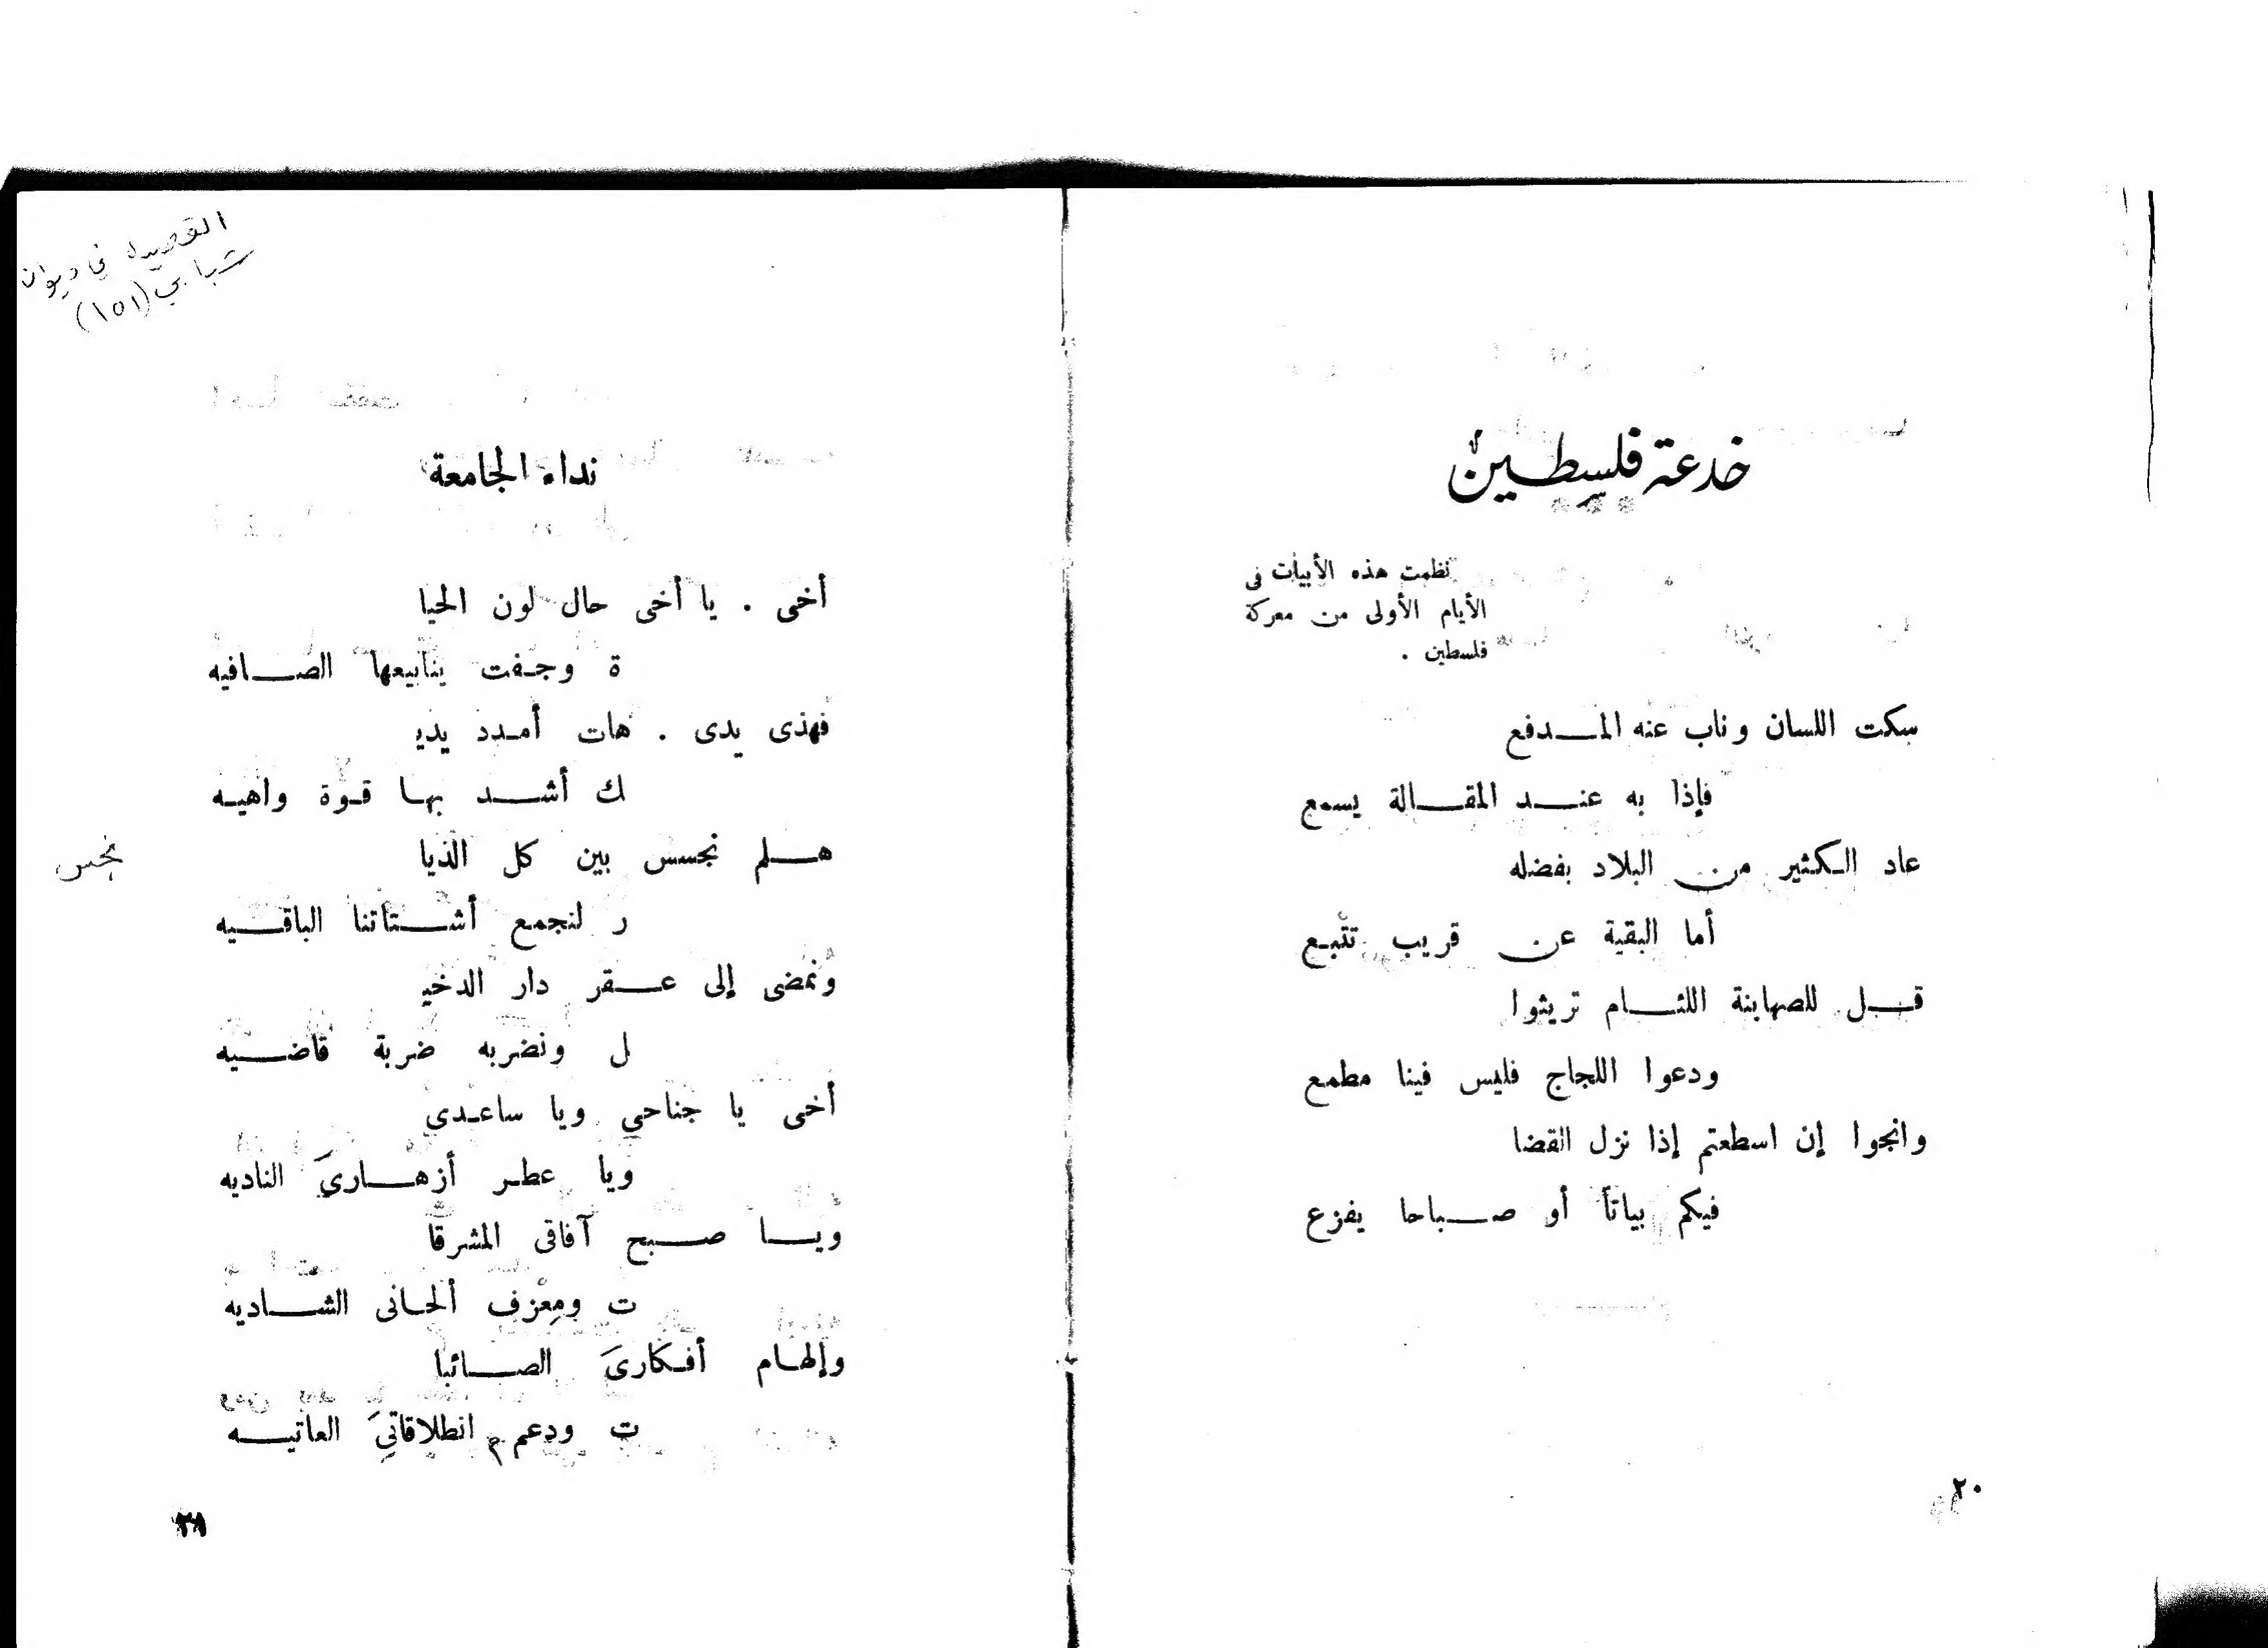 خدعة فلسطين
نظمت هذه الأبيات فى
الأيام الأولى من معركة
فلسطين .
سكت اللسان وناب عنه المدفع
فإذا به عند المقالة يسمع
عاد الكثير من البلاد بفضله
أما البقية عن قريب تتبع
قل للصهاينة اللئام تريثوا
ودعوا اللجاج فليس فينا مطمع
وانجوا إن اسطعتم إذا نزل القضا
فيكم بياتاً أو صباحا يفزع
٢٠
القصيدة في ديوان
شبابي (١٥١)
نداء الجامعة
أخى . يا أخى حال لون الحيا
ة وجفت ينابيعها الصافيه
فهذى يدى . هات أمدد يديـ
ك أشد بها قوة واهيه
هلم نجسس بين كل الذيا
ر لنجمع أشتاتنا الباقيه
ونمضى إلى عقر دار الدخيـ
ل ونضربه ضربة قاضيه
أخى يا جناحي ويا ساعدي
ويا عطر أزهاريَ الناديه
ويا صبح آفاقى المشرقا
ت ومِعْزف ألحانى الشاديه
وإلهام أفكارىَ الصائبا
ت ودعم انطلاقاتِيَ العاتيه